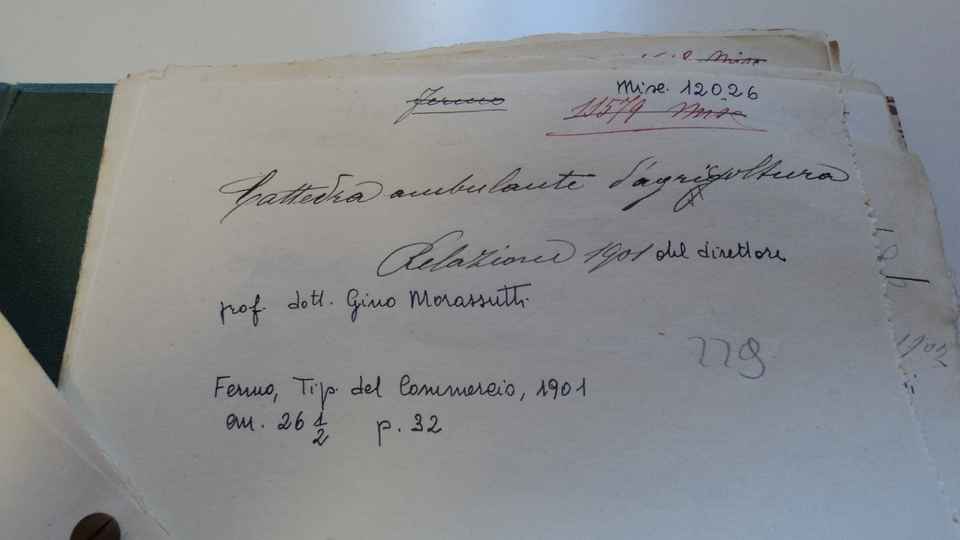 Misc.
Fermo
Misc. 12026
11579 Misc
Cattedra ambulante d'agricoltura
Relazione 1901 del direttore
prof. dott. Gino Morassutti
229
1902
Fermo, Tip. del Commercio, 1901
cm. 26 1/2 p. 32